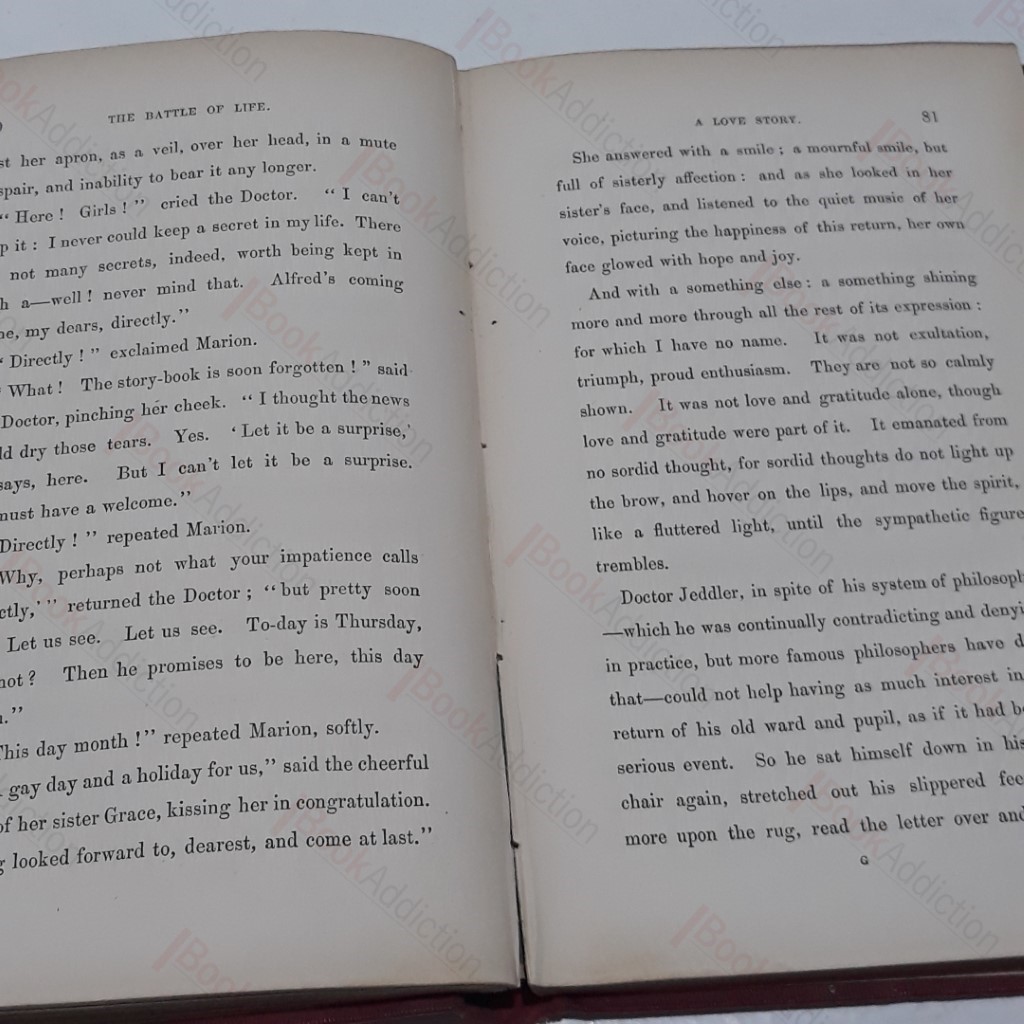 THE BATTLE OF LIFE.
st her apron, as a veil, over her head, in a mute
spair, and inability to bear it any longer.
“ Here ! Girls ! ” cried the Doctor. “ I can’t
p it : I never could keep a secret in my life. There
not many secrets, indeed, worth being kept in
h a—well ! never mind that. Alfred’s coming
ne, my dears, directly.”
“ Directly ! ” exclaimed Marion.
“ What ! The story-book is soon forgotten ! ” said
Doctor, pinching her cheek. “ I thought the news
ld dry those tears. Yes. ‘ Let it be a surprise,’
says, here. But I can’t let it be a surprise.
must have a welcome.”
Directly ! ” repeated Marion.
Why, perhaps not what your impatience calls
ctly,’ ” returned the Doctor ; “ but pretty soon
Let us see. Let us see. To-day is Thursday,
not ? Then he promises to be here, this day
.”
This day month ! ” repeated Marion, softly.
gay day and a holiday for us,” said the cheerful
of her sister Grace, kissing her in congratulation.
g looked forward to, dearest, and come at last.”
A LOVE STORY. 81
She answered with a smile ; a mournful smile, but
full of sisterly affection : and as she looked in her
sister’s face, and listened to the quiet music of her
voice, picturing the happiness of this return, her own
face glowed with hope and joy.
And with a something else : a something shining
more and more through all the rest of its expression :
for which I have no name. It was not exultation,
triumph, proud enthusiasm. They are not so calmly
shown. It was not love and gratitude alone, though
love and gratitude were part of it. It emanated from
no sordid thought, for sordid thoughts do not light up
the brow, and hover on the lips, and move the spirit,
like a fluttered light, until the sympathetic figure
trembles.
Doctor Jeddler, in spite of his system of philosoph
—which he was continually contradicting and denyi
in practice, but more famous philosophers have d
that—could not help having as much interest in
return of his old ward and pupil, as if it had be
serious event. So he sat himself down in his
chair again, stretched out his slippered fee
more upon the rug, read the letter over and
G
BookAddiction